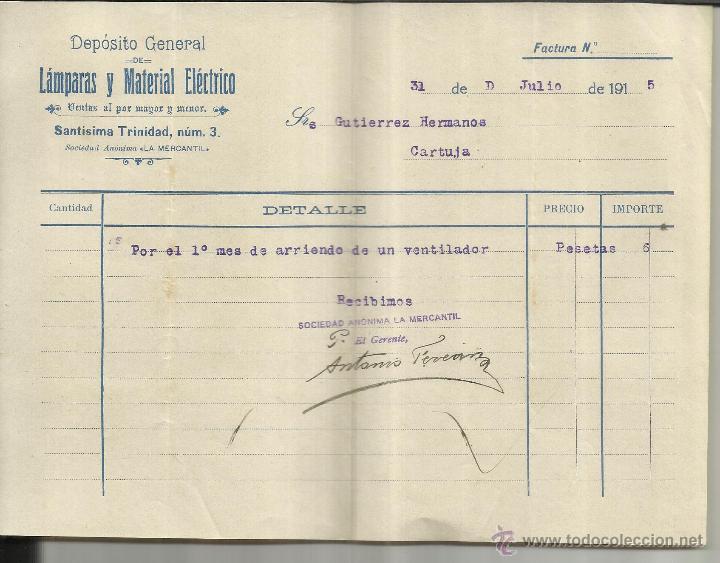 Depósito General
DE
Lámparas y Material Eléctrico
Ventas al por mayor y menor.
Santísima Trinidad, núm. 3.
Sociedad Anónima «LA MERCANTIL»
Factura N.º
31 de D Julio de 1915
Srs Gutierrez Hermanos
Cartuja
Cantidad DETALLE PRECIO IMPORTE
Por el 1º mes de arriendo de un ventilador Pesetas 6
Recibimos
SOCIEDAD ANÓNIMA LA MERCANTIL
P. El Gerente,
Antonio
www.todocoleccion.net